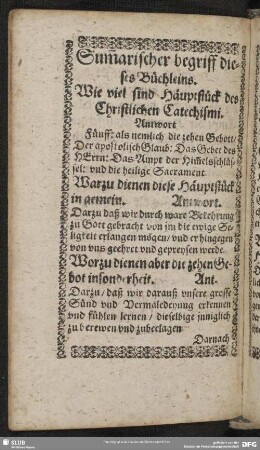 Sumarischer begriff die-
ses Büchleins.
Wie viel sind Häuptstück des
Christlichen Catechismi.
Antwort
Fünff: als nemlich die zehen Gebott/
Der apostolisch Glaub: Das Gebet des
HErrn: Das Ampt der Himelschlüs-
sel: vnd die heilige Sacrament
Warzu dienen diese Häuptstück
in gemein. Antwort.
Darzu daß wir durch ware Bekehrung
zu Gott gebracht von jm die ewige Se-
ligkeit erlangen mögen/ vnd er hingegen
von vns geehret vnd gepreysen werde.
Worzu dienen aber die zehen Ge-
bot insonderheit. Ant-
Darzu/ daß wir darauß vnsere grosse
Sünd vnd Vermaledeyung erkennen
vnd fühlen lernen/ dieselbige jnniglich
zu berewen vnd zubeklagen
Darnach
SLUB
DFG